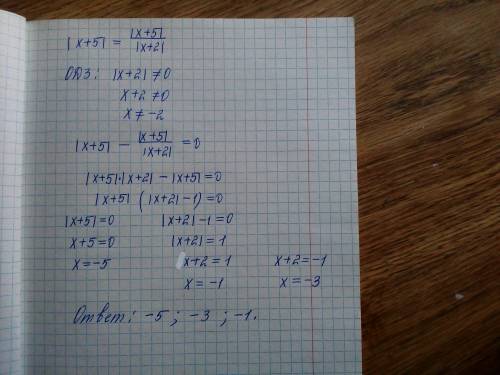 |x+5| = |x+5| / |x+2|
ОДЗ: |x+2| ≠ 0
x+2 ≠ 0
x ≠ -2
|x+5| - |x+5| / |x+2| = 0
|x+5|·|x+2| - |x+5| = 0
|x+5| (|x+2| - 1) = 0
|x+5| = 0 |x+2| - 1 = 0
x+5 = 0 |x+2| = 1
x = -5 x+2 = 1 x+2 = -1
x = -1 x = -3
Ответ: -5; -3; -1.